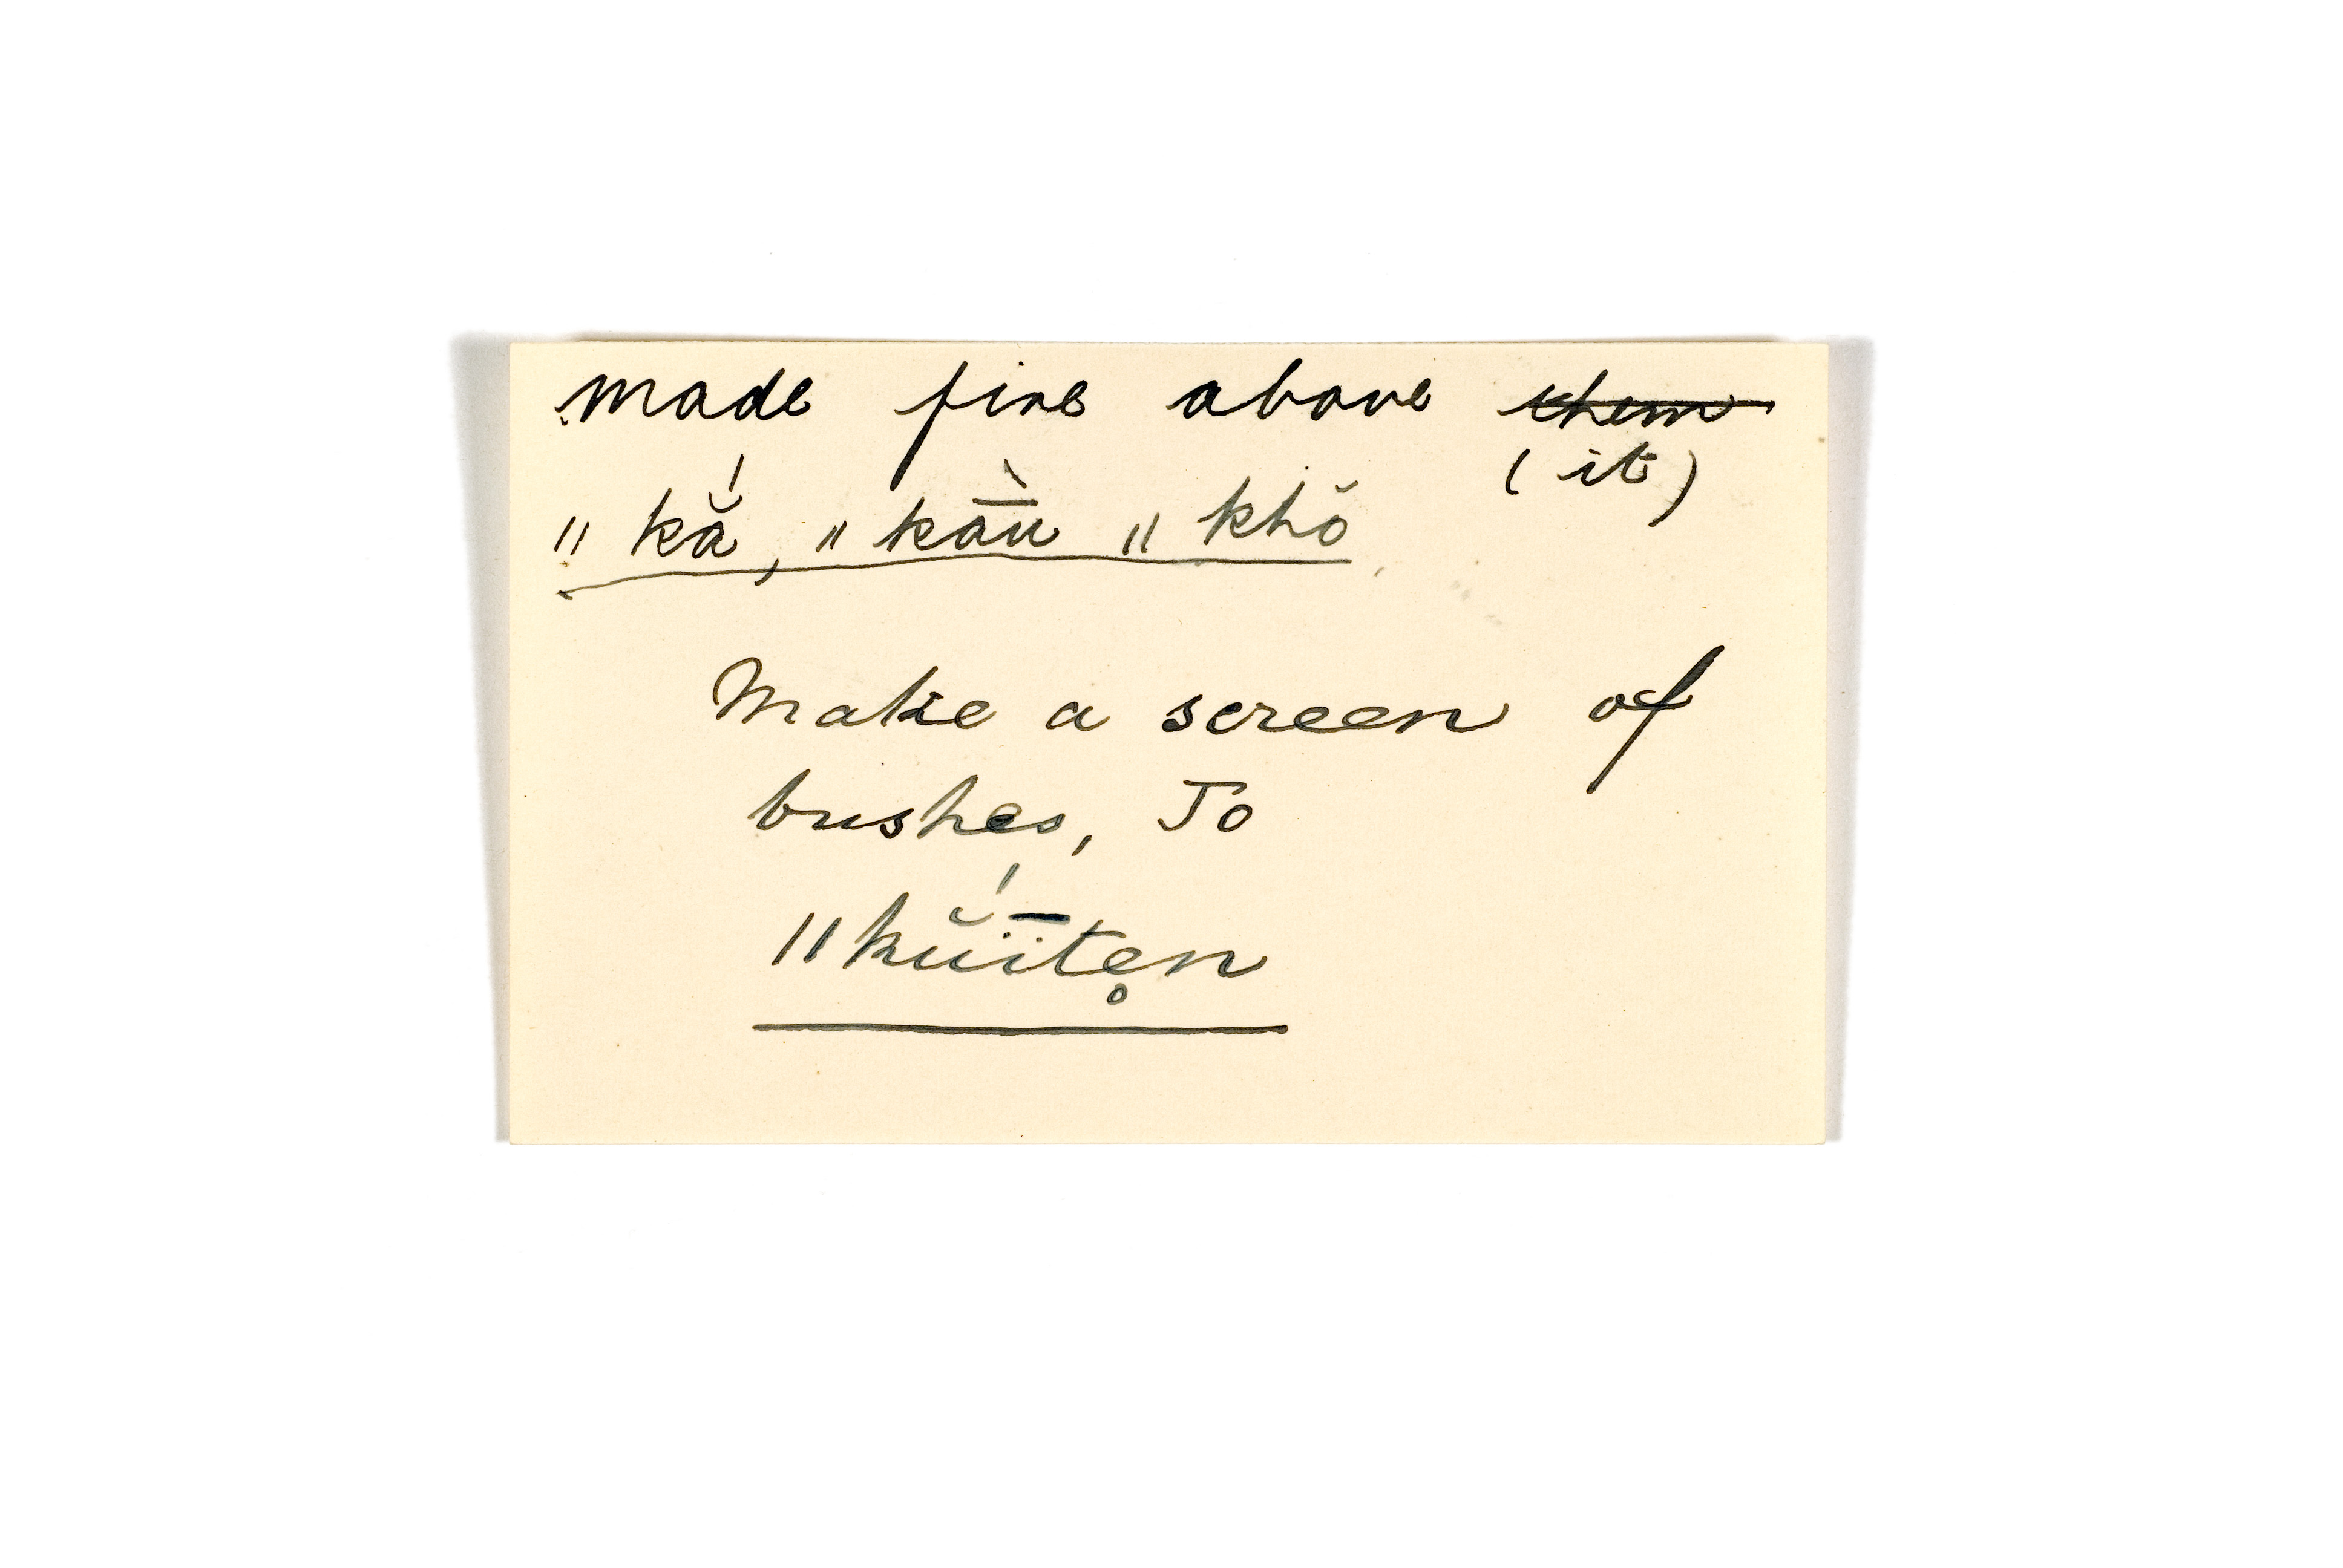 made fire above ~~them~~
(it)
‖ kắ, ‖ kā̀u ‖ khŏ
Make a screen of
bushes, To
‖kŭ́ïten̥